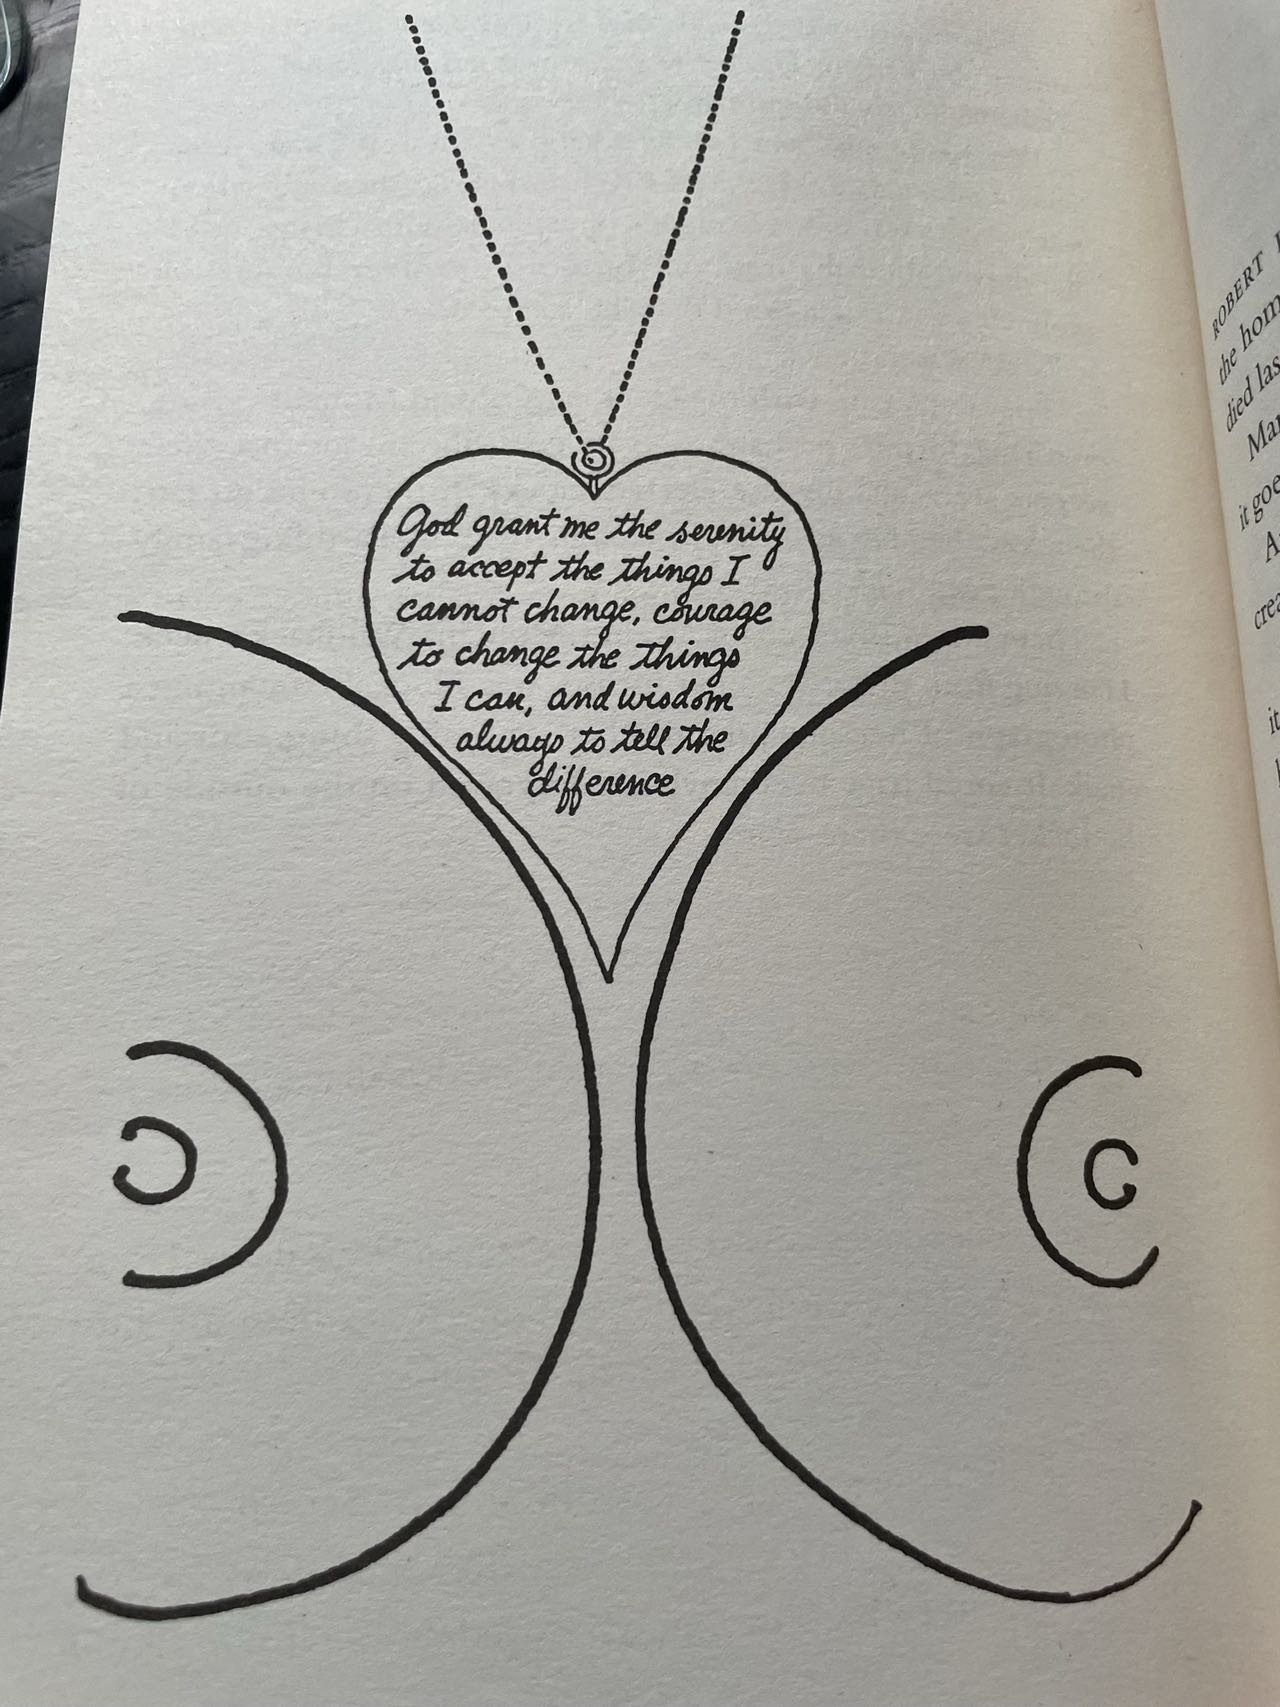 God grant me the serenity
to accept the things I
cannot change, courage
to change the things
I can, and wisdom
always to tell the
difference
ROBERT
the
died